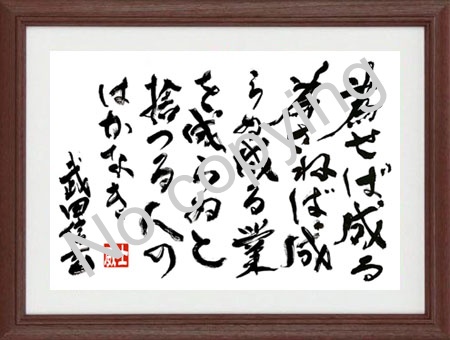 為せば成る
為さねば成
らぬ成る業
を成らぬと
捨つる人の
はかなき
武田信玄
No copying